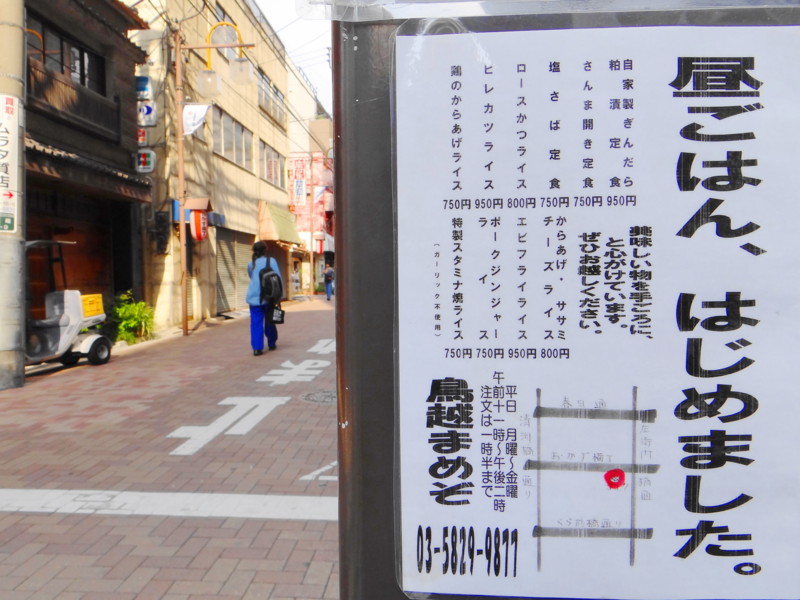 昼ごはん、はじめました。
美味しい物を手ごろに、
と心がけています。
ぜひお越しください。
自家製ぎんだら
粕漬定食
950円
さんま開き定食
750円
塩さば定食
750円
ロースかつライス
800円
ヒレカツライス
950円
鶏のからあげライス
750円
からあげ・ササミ
チーズライス
800円
エビフライライス
950円
ポークジンジャー
ライス
750円
特製スタミナ焼ライス
(ガーリック不使用)
750円
平日 月曜～金曜
午前十一時～午後二時
注文は一時半まで
鳥越まめぞ
03-5829-9877
春日通
おかず横丁
くらまえ橋通り
清洲橋通り
買取
ムラタ質店
止まれ